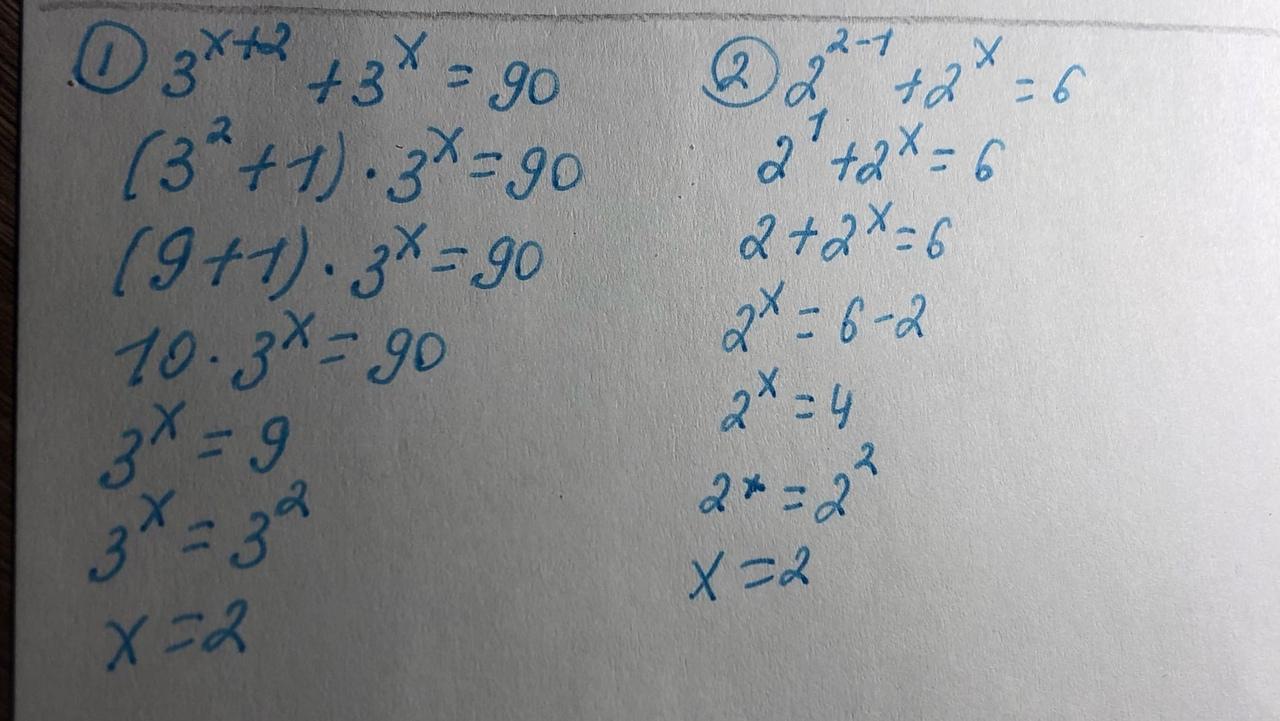 ① 3^{x+2} + 3^x = 90
(3^2 + 1) · 3^x = 90
(9 + 1) · 3^x = 90
10 · 3^x = 90
3^x = 9
3^x = 3^2
x = 2
② 2^{2-1} + 2^x = 6
2^1 + 2^x = 6
2 + 2^x = 6
2^x = 6 - 2
2^x = 4
2^x = 2^2
x = 2